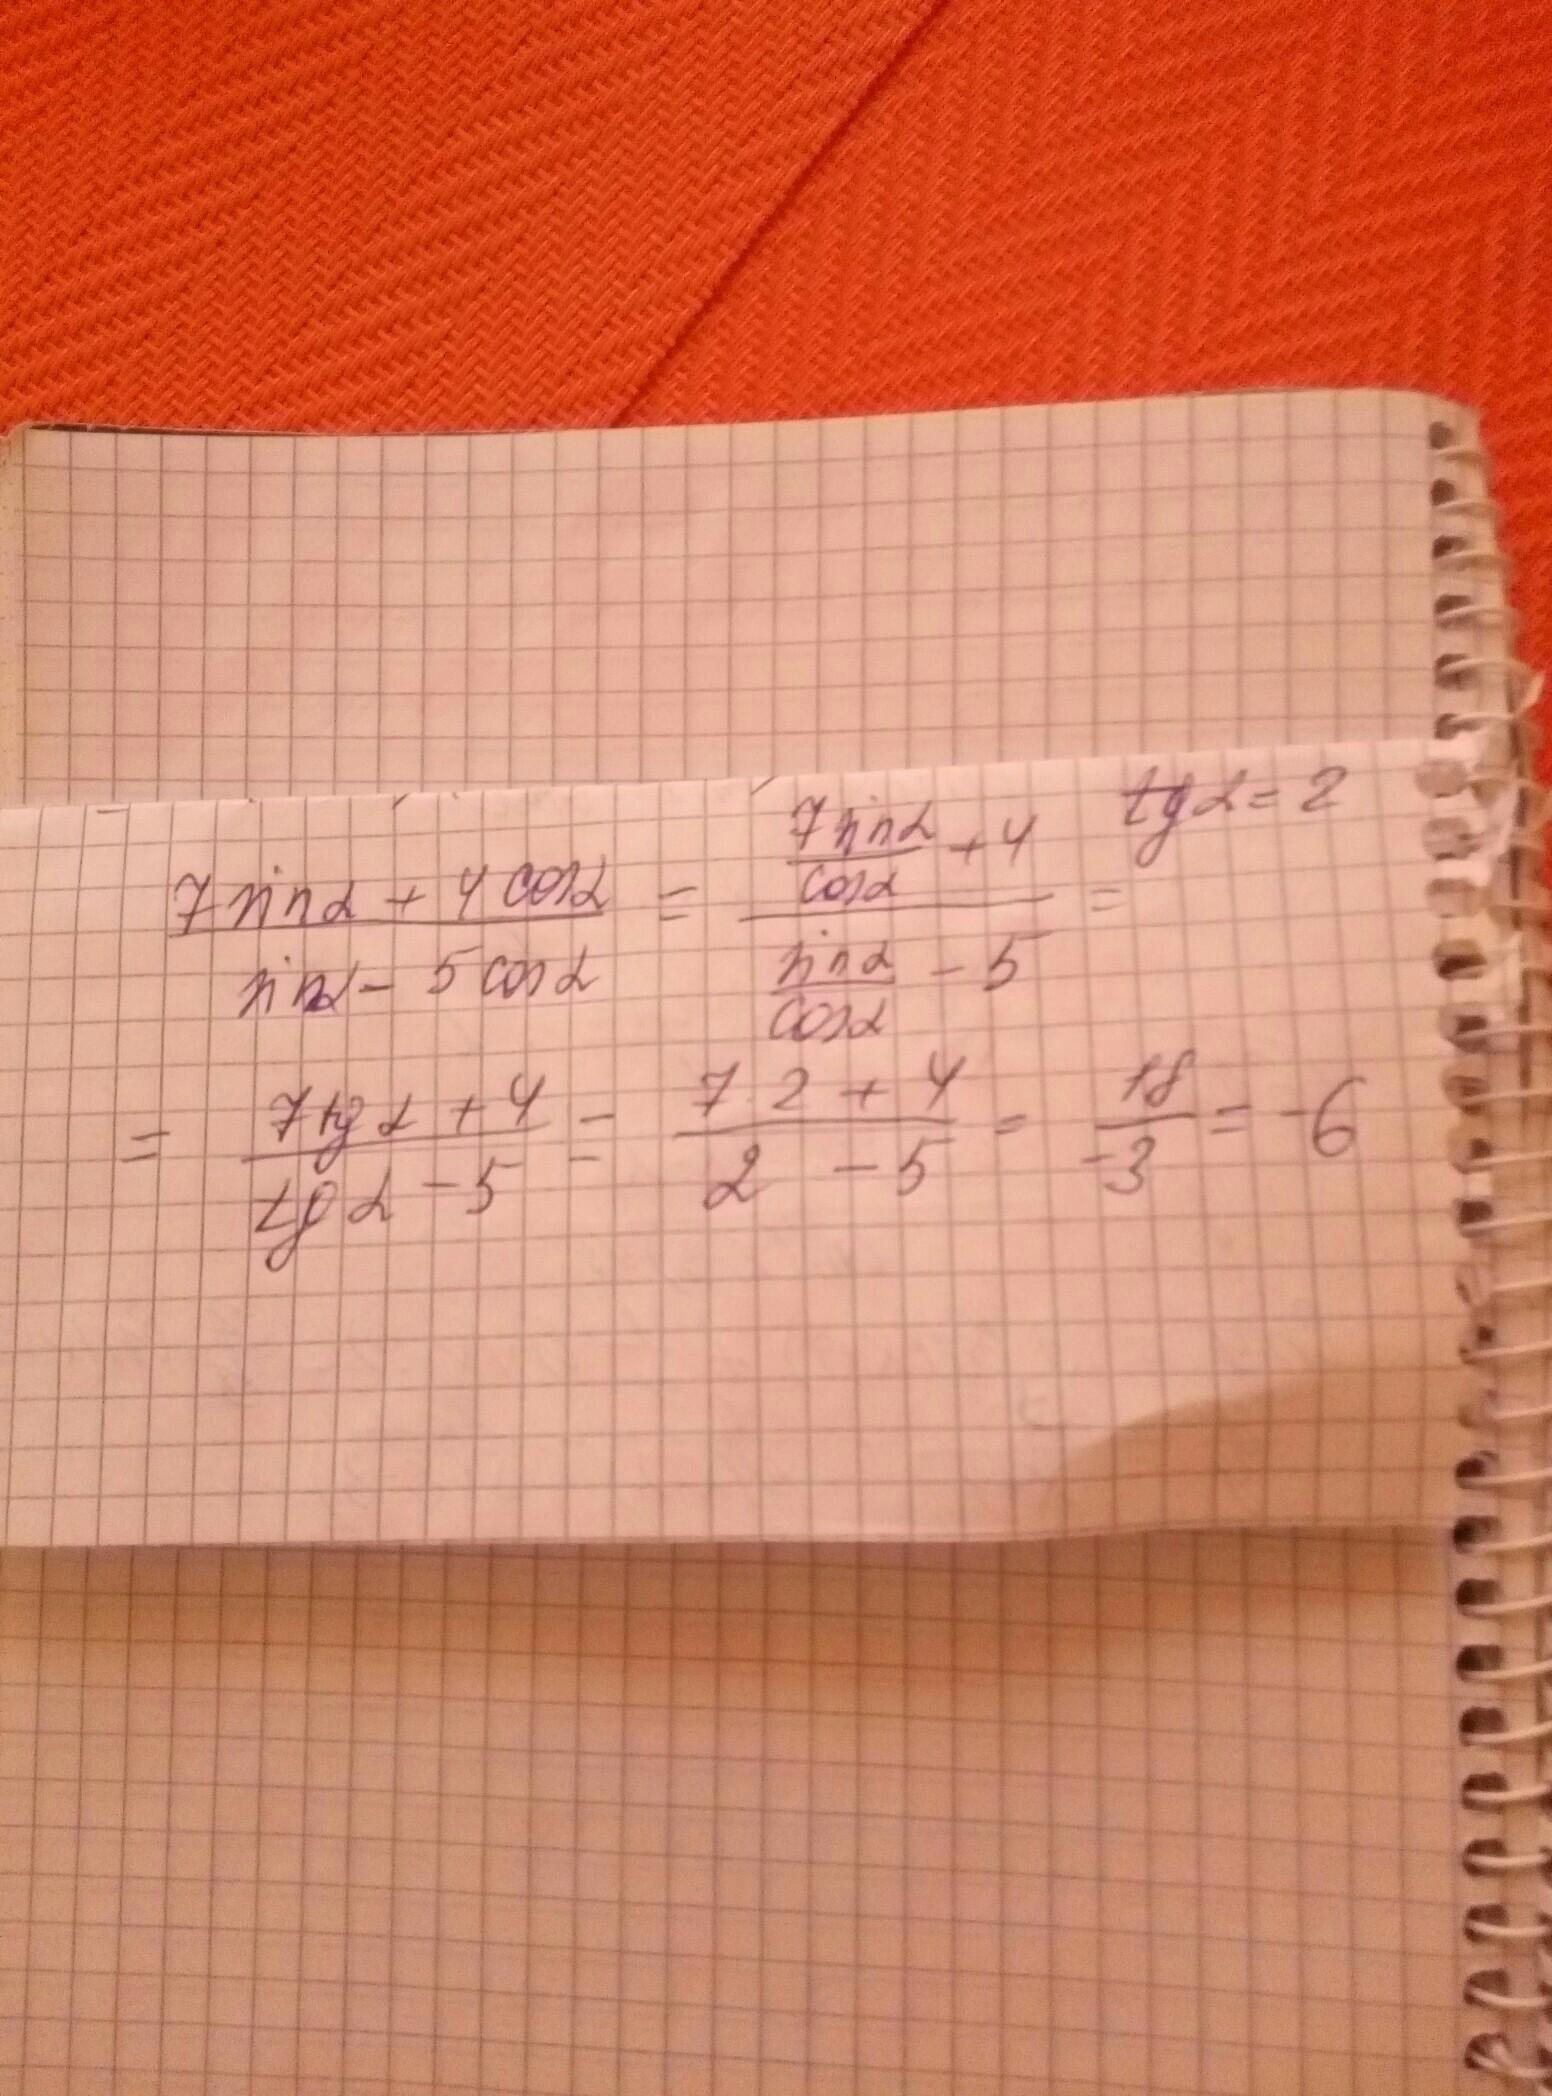 tg α = 2
(7 sin α + 4 cos α)/(sin α - 5 cos α) = ((7 sin α)/(cos α) + 4)/((sin α)/(cos α) - 5) =
= (7 tg α + 4)/(tg α - 5) = (7 · 2 + 4)/(2 - 5) = 18/-3 = -6